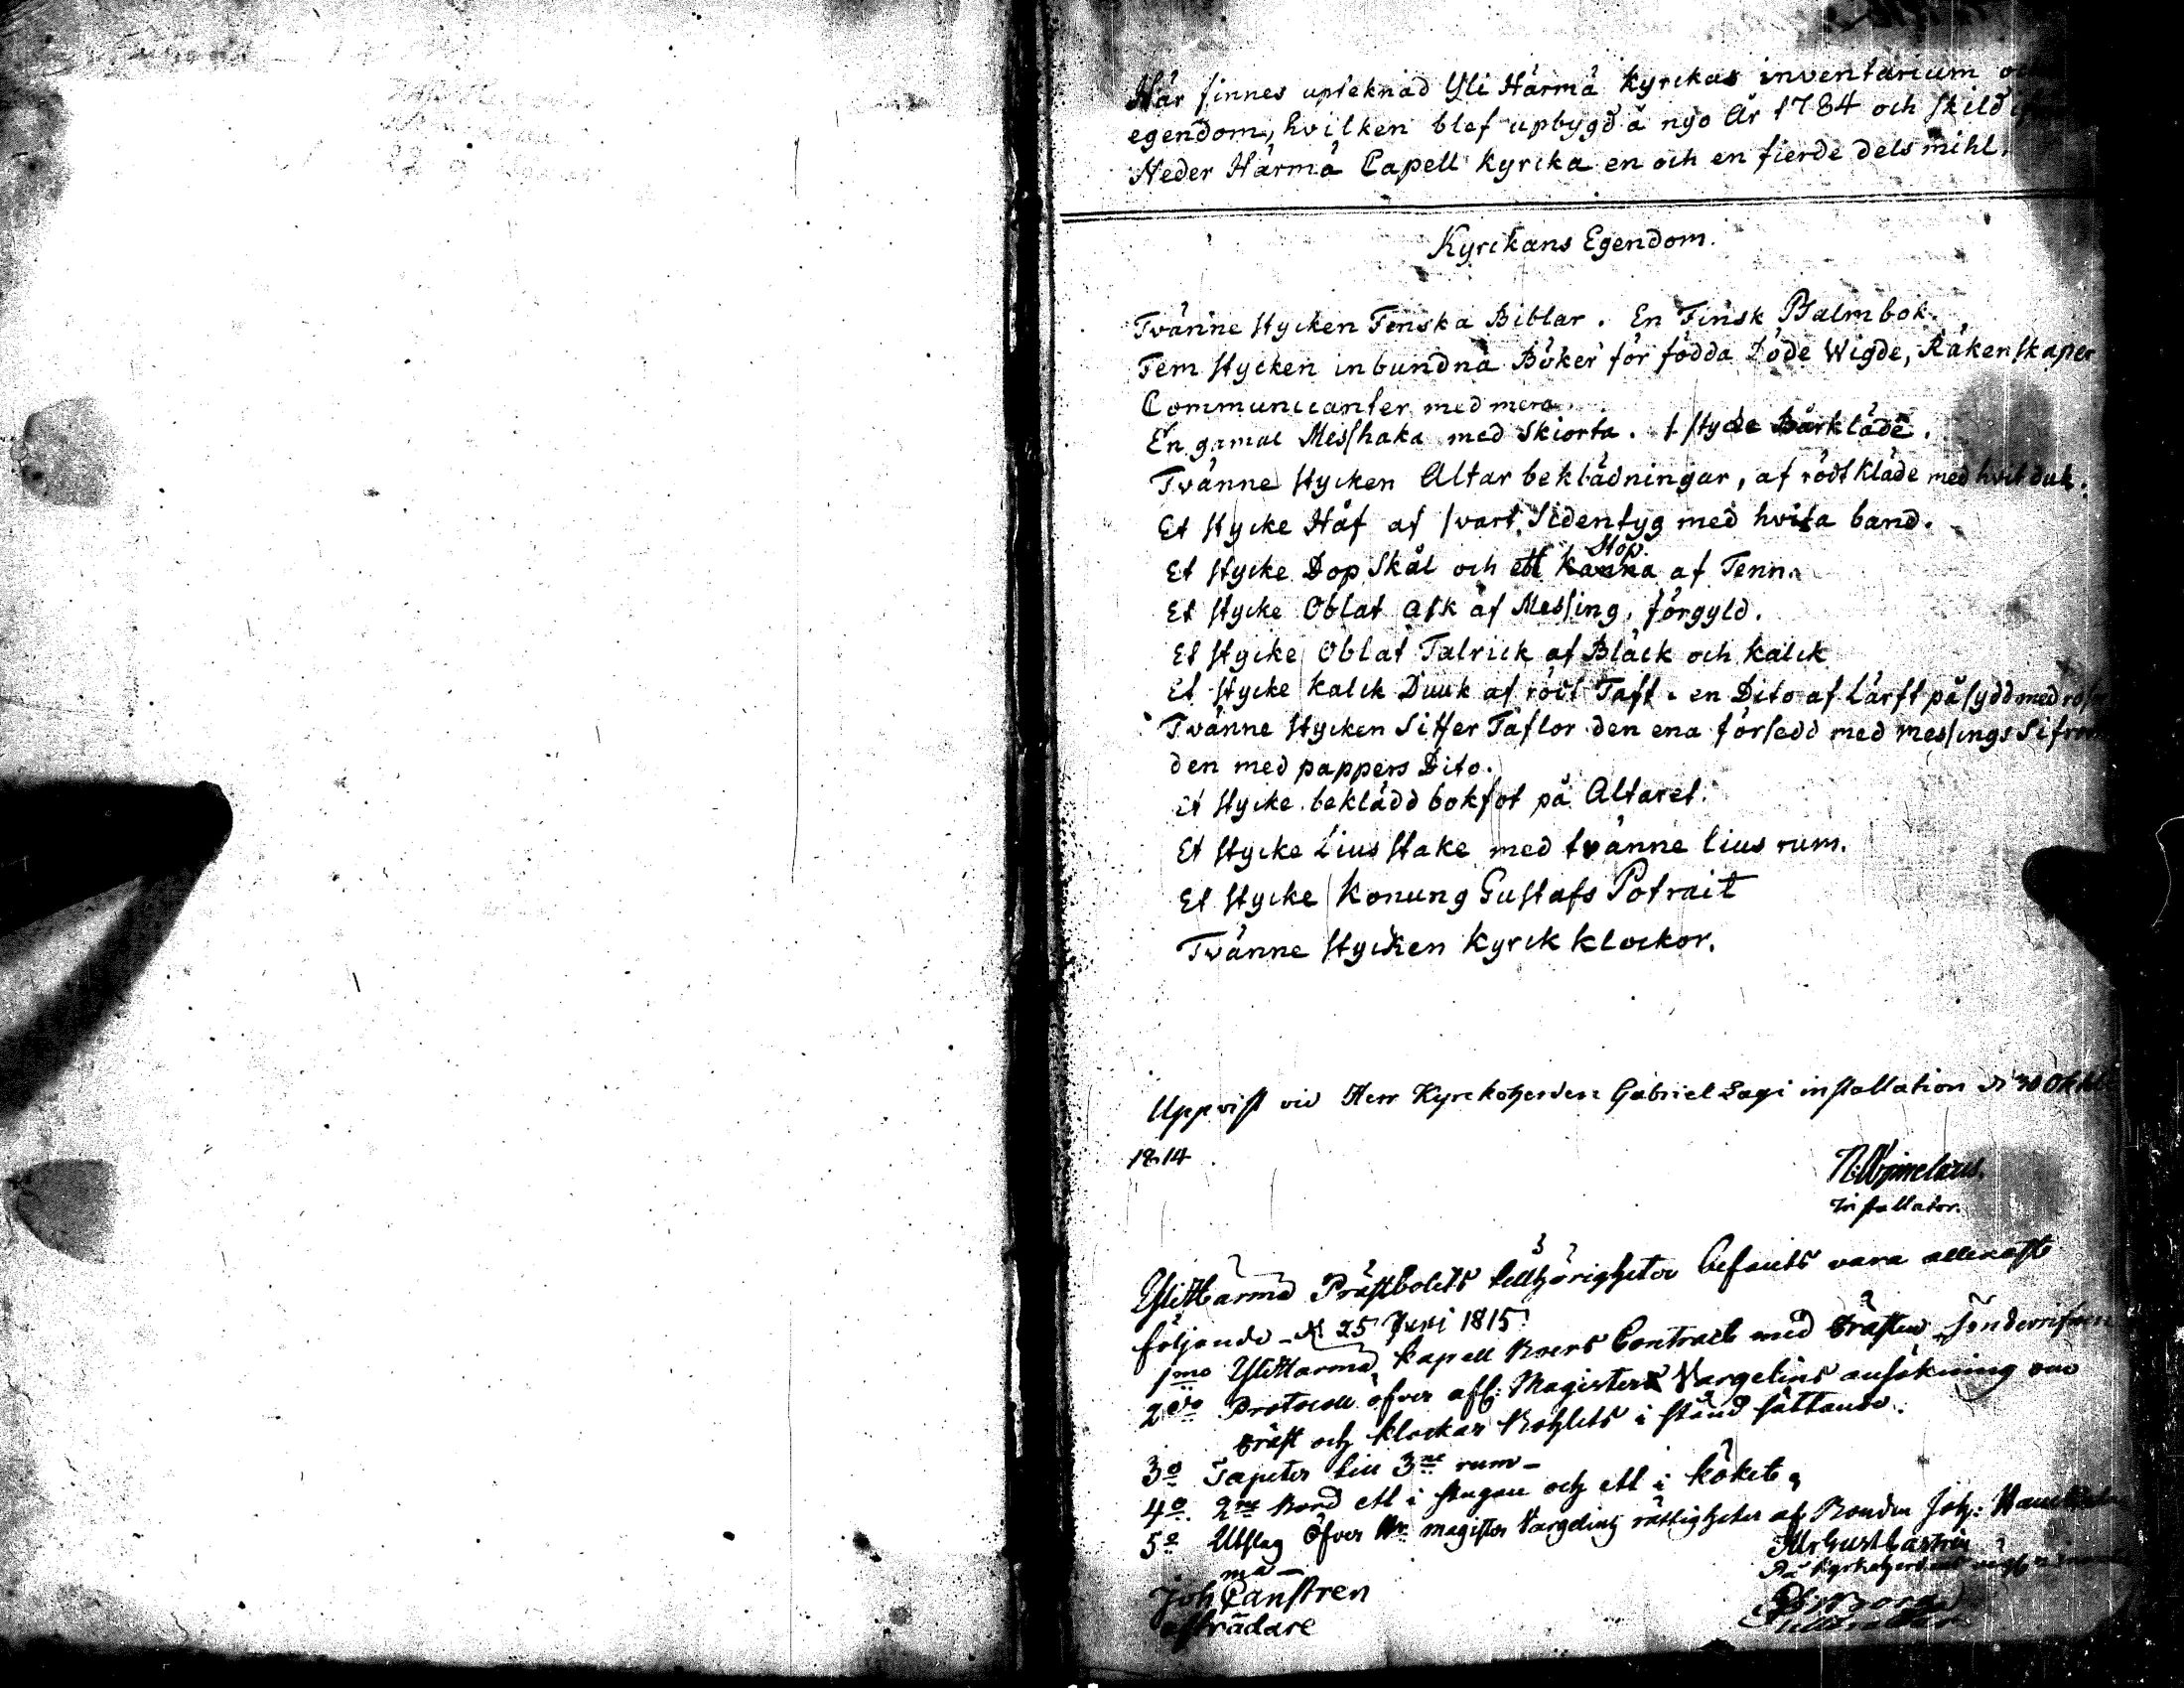 Här finnes upteknad Yli Härmä kyrckas inventarium
egendom, hvilken blef upbygd å nyo År 1784 och skild
Neder Härmä Capell kyrcka en och en fierde dels mihl.
Kyrckans Egendom.
Tvänne stycken Finska Biblar. En Finsk Psalmbok.
Fem stycken inbundna Böker för födda Döde Wigde, Räkenskaper
Communicanter med mera.
En gamal Messhaka med Skiorta. 1 stycke Bårkläde.
Tvänne stycken Altar beklädningar, af rödt kläde med hvit duk.
Et stycke Håf af svart Sidentyg med hvita band.
Stop.
Et stycke Dop Skål och ett kanna af Tenn.
Et stycke Oblat ask af Messing, förgyld.
Et stycke Oblat Talrick af Bläck och kalck
Et stycke kalck Duuk af rödt Taft. en Dito af Lärft påsydd med
Tvänne stycken Siffer Taflor den ena försedd med messings
den med pappers Dito.
Et stycke beklädd bokfot på Altaret.
Et stycke Lius stake med tvänne lius rum.
Et stycke Konung Gustafs Potrait
Tvänne stycken kyrck klockor.
Uppvist vid Herr Kyrckoherden Gabriel Lagi installation d. 30
1814
Installator.
Ylihärmä Prästbolets tillhörigheter befants vara allenast
följande d. 25 Juni 1815
1mo Ylihärmä kapell Boers Contract med Prästen
2do Protocoll öfver Magister Vargelins ansökning om
Präst och klockar Bohlets i stånd sättande.
3o Tapeter till 3ne rum -
4o. 2ne Bord ett i stugan och ett i köket
5o Utslag öfver magister Vargelins rättigheter af Bonden Joh:
mä -
Joh Canstren
afträdare